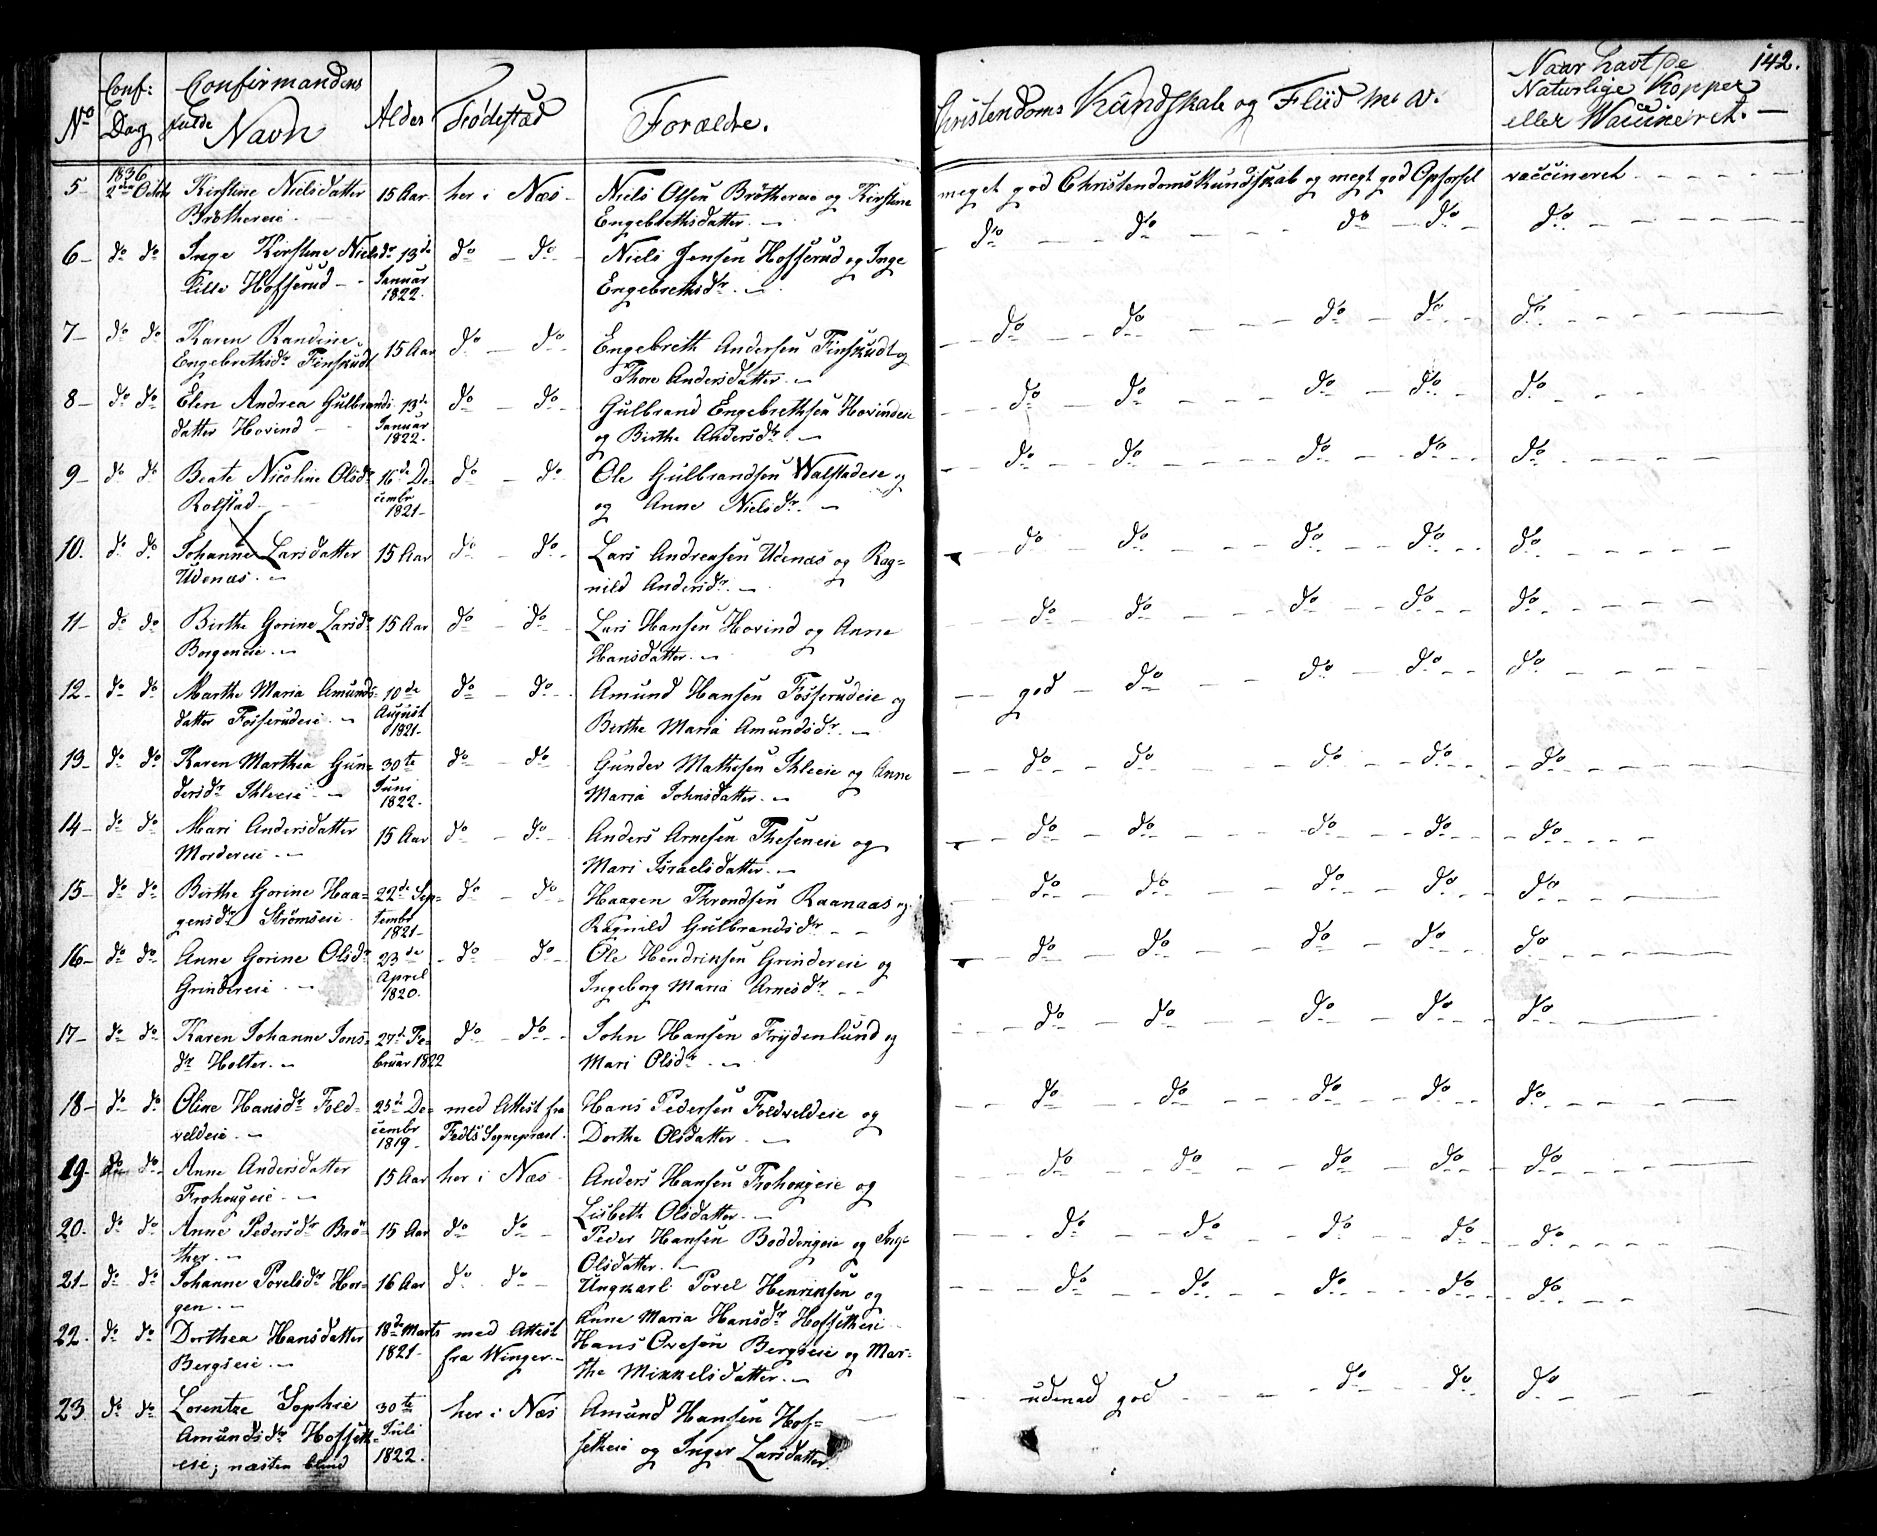 142.
No Conf: Dag Confirmandens fulde Navn Alder Fødestæd Forældre. Christendoms Kundskab og Fliid m. v. Naar havt de Naturlige Kopper eller Vaccineret. —
5 – 1836 2den Octbr Kirstine Nielsdatter 15 Aar. her i Næs – Niels Olsen Brøthereie og Kirstine meget god Christendomskundskab og meget god Opførsel vaccineret
Brøthereie. – Engebrethsdatter. –
6 – do do Inge Kirstine Nielsdr 13de do – do Niels Jensen Hofserud og Inge do do do do do
Lille Hofserud – Januar 1822. Engebrethsdr. –
7 – do do Karen Randine 15 Aar do – do Engebreth Andersen Finskudt og do do do do do
Engebrethsdr Finskudt Thore Andersdatter. –
8 – do do Elen Andrea Gulbrands 13de do – do Gulbrand Engebrethsen Hovindeie do do do do do
datter Hovind – Januar 1822. og Birthe Andersdr. –
9 – do do Beate Nicoline Olsdr 16de De- do – do Ole Gulbrandsen Walstadeie og do do do do do
Rolstad – cembr 1821 – og Anne Nielsdr. –
10. do do Johanne Larsdatter 15 Aar do – do Lars Andreasen Udenæs og Rag= do do do do do
Udenæs. – nild Andersdr. –
11 – do do Birthe Gorine Larsdr 15 Aar do – do Lars Hansen Hovind og Anne do do do do do
Borgeneie. – Hansdatter. –
12 – do do Marthe Maria Amunds- 10de do – do Amund Hansen Fosserudeie og god do do do do
datter Fosserudeie. – August 1821 – Birthe Maria Amundsdr. –
13 – do do Karen Marthea Gun= 30te do – do Gunder Mathesen Ihleeie og Anne do do do do do
dersdr Ihleeie – Juni 1822. Maria Johnsdatter. –
14 – do do Mari Andersdatter 15 Aar do – do Anders Arnesen Theseneie og do do do do do
Mordereie. – Mari Israelsdatter. –
15 – do do Birthe Gorine Haa= 22de Sep- do – do Haagen Throndsen Raanaas og do do do do do
gensdr Strømseie. tembr 1821 – Ragnild Gulbrandsdr – –
16 – do do Anne Gorine Olsdr 23de do – do Ole Hendriksen Grindereie og do do do do do
Grindereie. – April 1820. Ingeborg Maria Arnesdr. – –
17 – do do Karen Johanne Jons= 27de Fe- do – do John Hansen Frydenlund og do do do do do
dr Holter. – bruar 1822 Mari Olsdr. –
18 – do do Oline Hansdr Fold= 25de De- med Attest fra Hans Pedersen Foldveldeie og do do do do do
veldeie. – cembr 1819 – Fedts Sognepræst. Dorthe Olsdatter. –
19 – do do Anne Andersdatter 15 Aar her i Næs – Anders Hansen Frohougeie og do do do do do
Frohougeie. – Lisbeth Olsdatter. –
20. do do Anne Pedersdr Brø= 15 Aar do do – Peder Hansen Boddingeie og Inge do do do do do
ther. – Olsdatter. –
21 – do do Johanne Povelsdr Hor= 16 Aar do do – Ungkarl Povel Henriksen og do do do do do
gen. – Anne Maria Hansdr Hofsetheie
22. do do Dorthea Hansdatter 18de Marts med Attest Hans Ovesen Bergseie og Mar=
Bergseie. – 1821 – fra Winger. – the Mikkelsdatter. –
23 do do Lorentze Sophie 30te her i Næs Amund Hansen Hof= udenad god do do do
Amundsdr Hofseth- Juli setheie og Inger Larsdatter.
eie; næsten blind 1822.